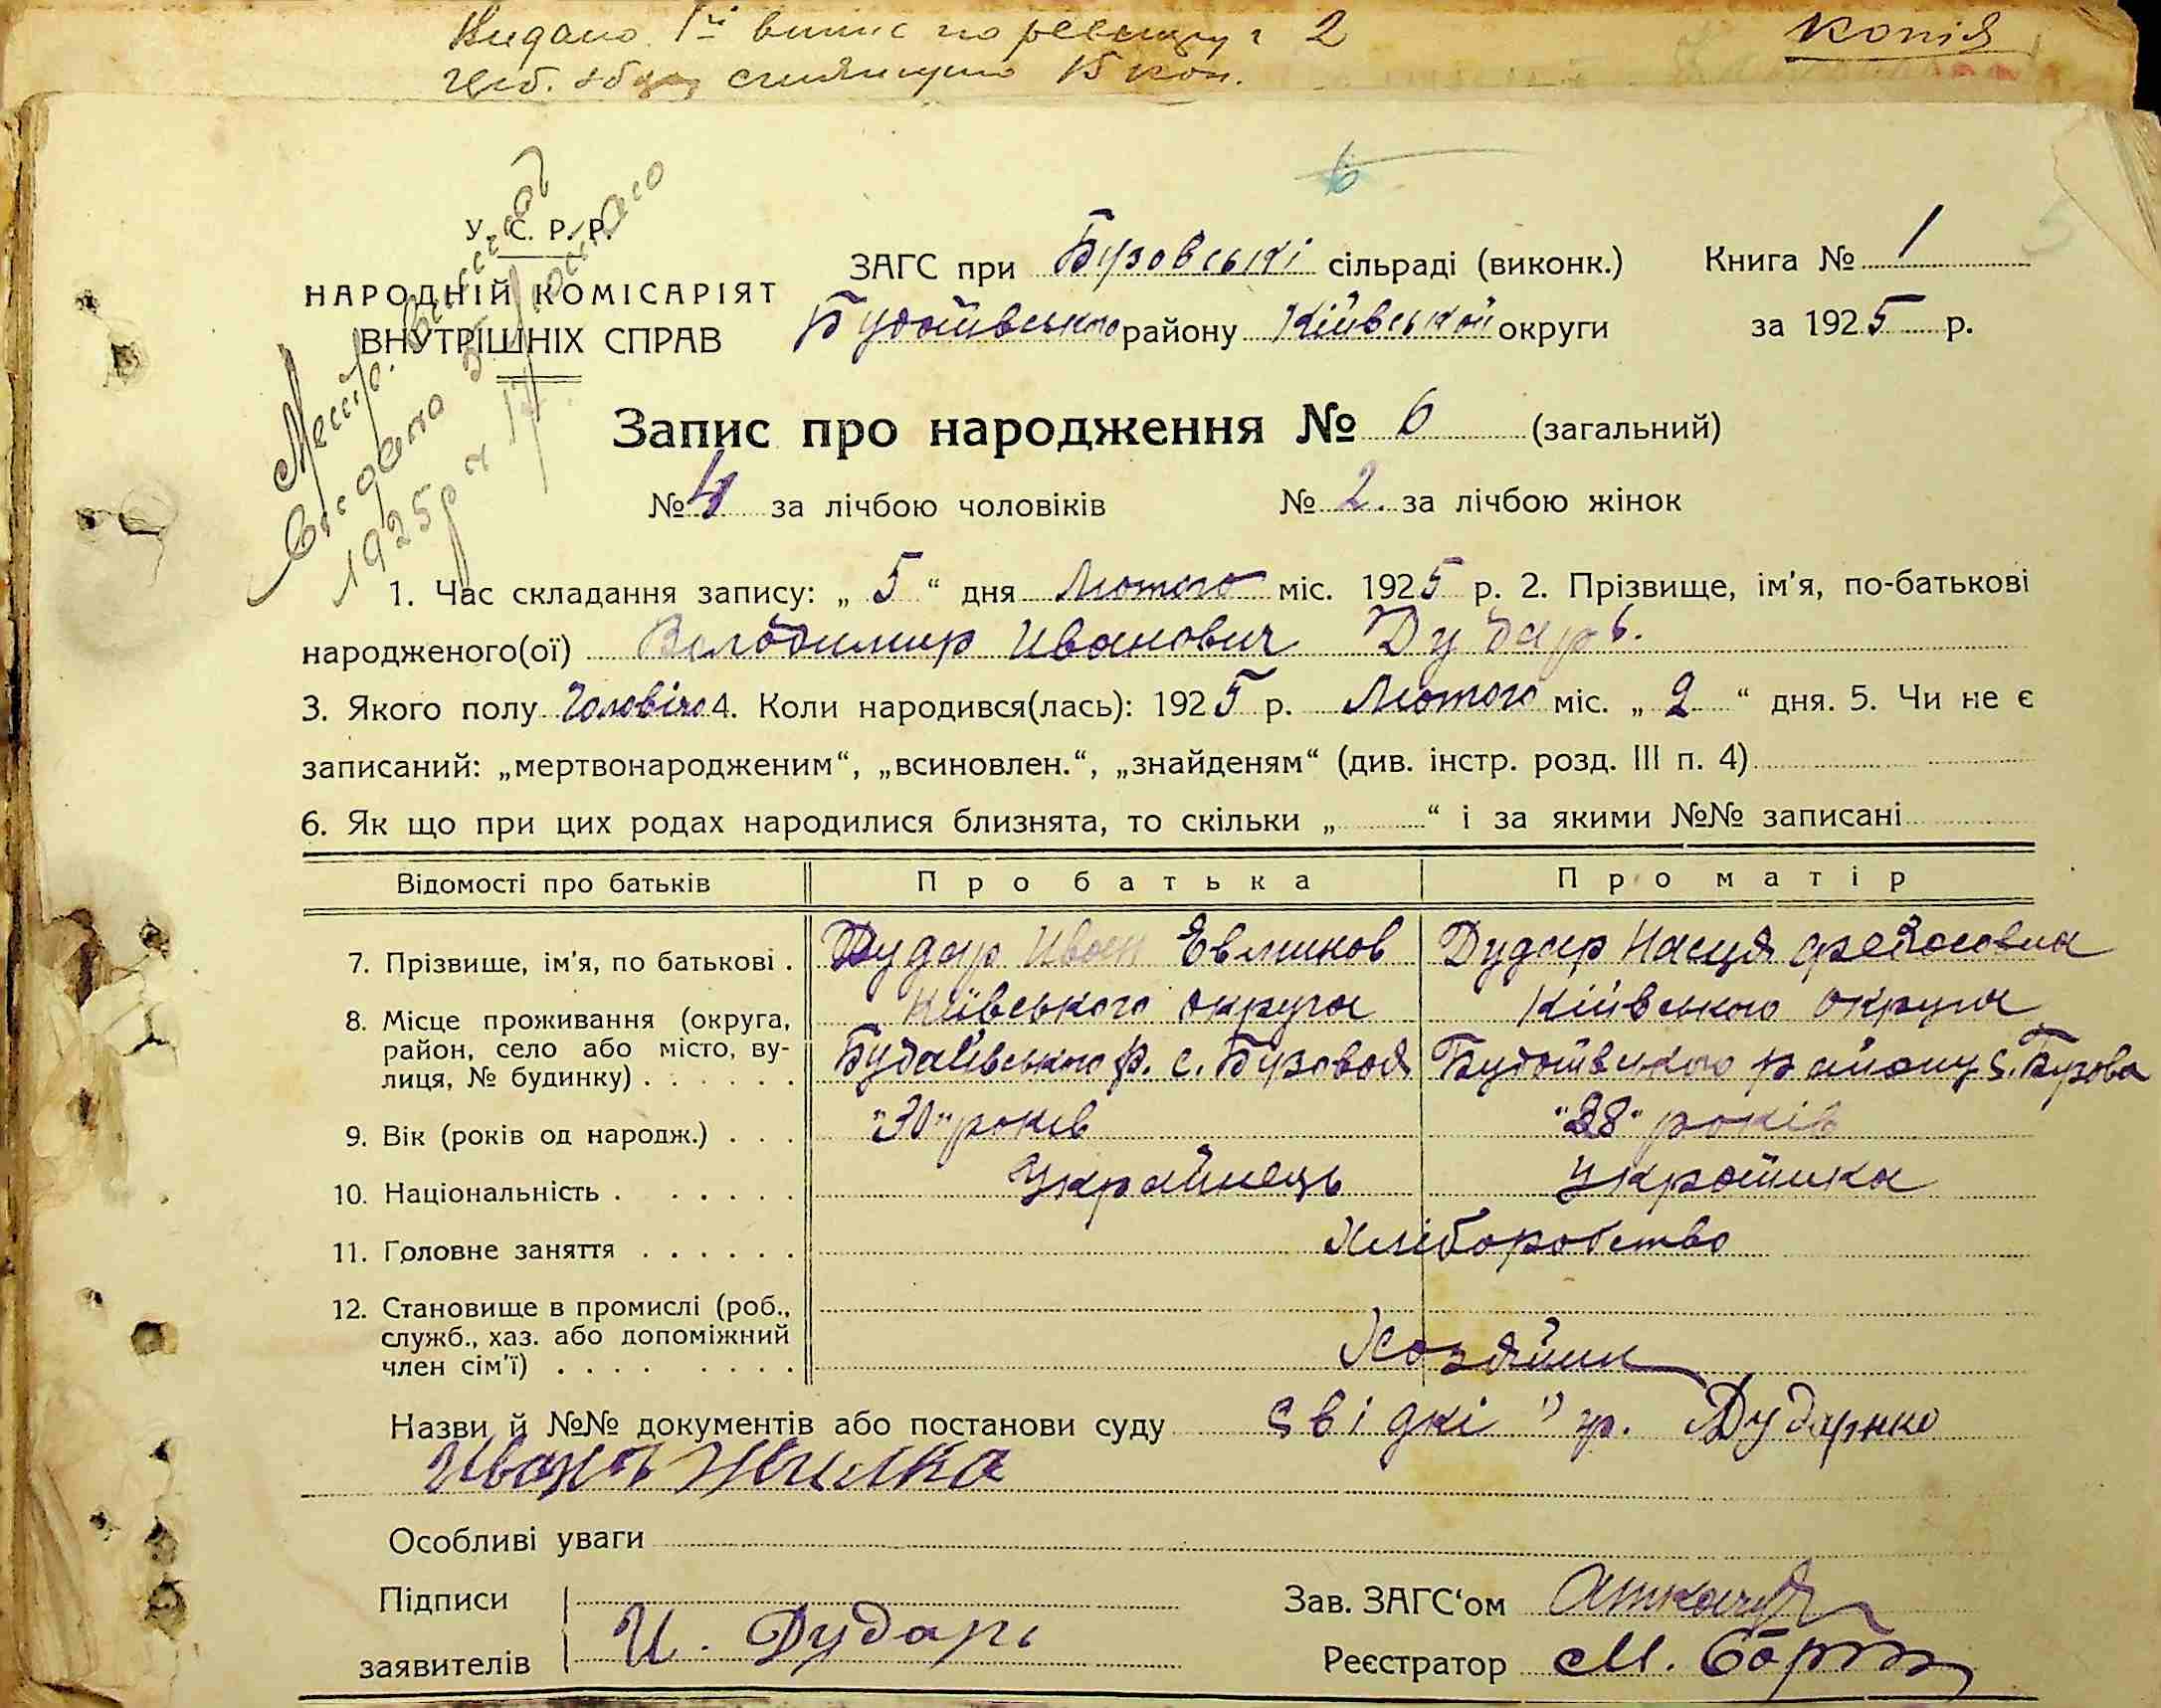 Видано 1й випис по реєстру 2
копія
15 коп.
6
У. С. Р. Р.
НАРОДНІЙ КОМІСАРІЯТ
ВНУТРІШНІХ СПРАВ
Видано 5 Лютого
1925 р
ЗАГС при Бузовські сільраді (виконк.) Книга № 1
Будаївського району Кіівськой округи за 1925 р.
Запис про народження № 6 (загальний)
№ 4 за лічбою чоловіків № 2. за лічбою жінок
1. Час складання запису: „ 5 “ дня Лютого міс. 1925 р. 2. Прізвище, ім'я, по-батькові
народженого(ої) Володимир Иванович Дударь.
3. Якого полу Чоловічо 4. Коли народився(лась): 1925 р. Лютого міс. „ 2 “ дня. 5. Чи не є
записаний: „мертвонародженим“, „всиновлен.“, „знайденям“ (див. інстр. розд. III п. 4)
6. Як що при цих родах народилися близнята, то скільки „ “ і за якими №№ записані
Відомості про батьків Про батька Про матір
7. Прізвище, ім'я, по батькові . Дудар Иван Дудар Насця
8. Місце проживання (округа, Київського округа Кіивського округа
район, село або місто, ву- Будаівського р. с. Бузовоя Будаівського району с. Бузова
лиця, № будинку) . . . . . .
9. Вік (років од народж.) . . . "30" років "28" років
10. Національність . . . . . . . Украйнець Украінка
11. Головне заняття . . . . . . Хліборобство
12. Становище в промислі (роб.,
служб., хаз. або допоміжний
член сім'ї) . . . . . . . . . Хозяйин
Назви й №№ документів або постанови суду свідкі гр. Дударнко
Особливі уваги
Підписи Зав. ЗАГС‘ом
И. Дударь
заявителів Реєстратор М.